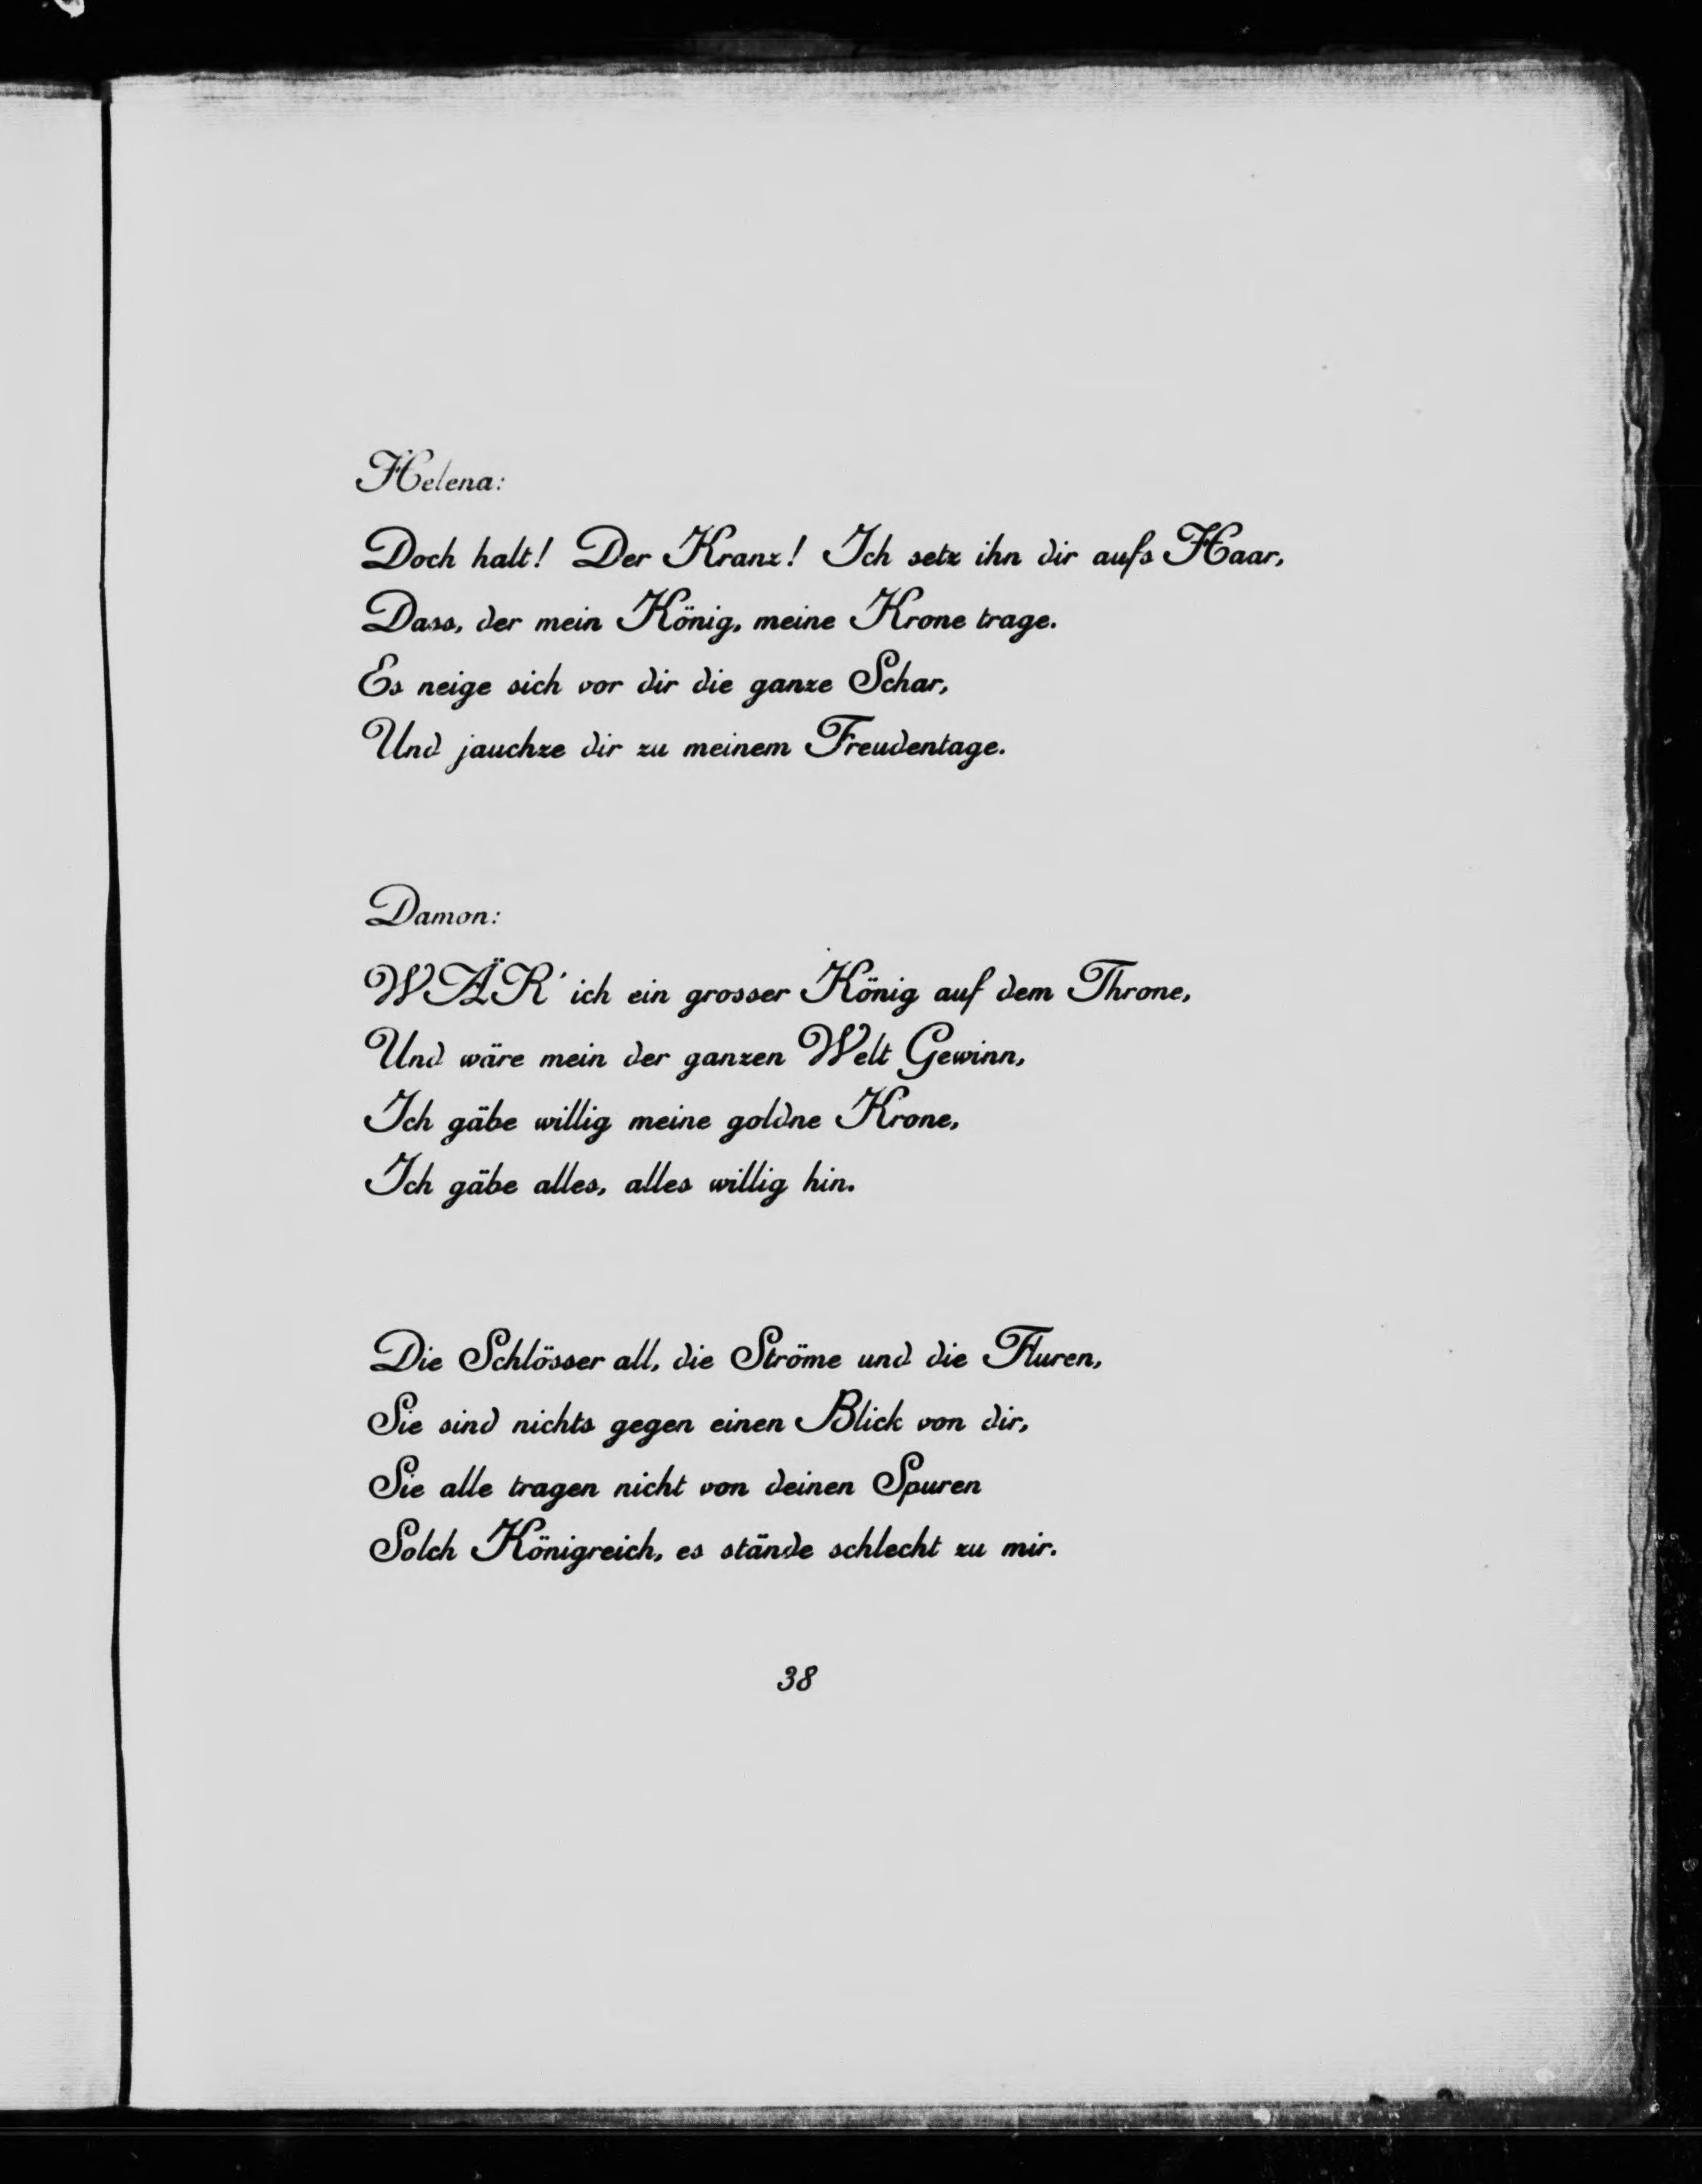 Helena:
Doch halt! Der Kranz! Ich setz ihn dir aufs Haar,
Dass, der mein König, meine Krone trage.
Es neige sich vor dir die ganze Schar,
Und jauchze dir zu meinem Freudentage.
Damon:
WÄR' ich ein grosser König auf dem Throne,
Und wäre mein der ganzen Welt Gewinn,
Ich gäbe willig meine goldne Krone,
Ich gäbe alles, alles willig hin.
Die Schlösser all, die Ströme und die Fluren,
Sie sind nichts gegen einen Blick von dir,
Sie alle tragen nicht von deinen Spuren
Solch Königreich, es stände schlecht zu mir.
38